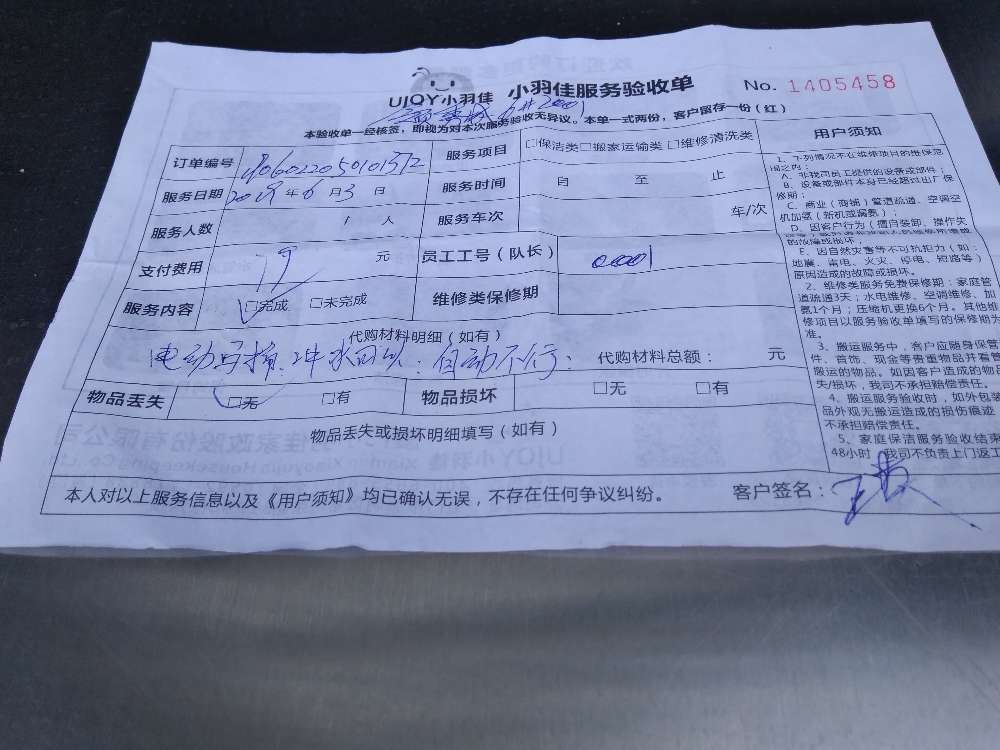 UJQY小羽佳 小羽佳服务验收单 No. 1405458
本验收单一经核签，即视为对本次服务验收无异议。本单一式两份，客户留存一份(红)
订单编号
服务项目 □保洁类□搬家运输类□维修清洗类
服务日期 2019年6月3日
服务时间 自 至 止
服务人数 1人
服务车次 车/次
支付费用 79元
员工工号(队长)
服务内容 □完成 □未完成
维修类保修期
代购材料明细(如有)
冲水可以：自动不行：
代购材料总额： 元
物品丢失 □无 □有
物品损坏 □无 □有
物品丢失或损坏明细填写(如有)
本人对以上服务信息以及《用户须知》均已确认无误，不存在任何争议纠纷。 客户签名：
用户须知
1、下列情况不在维修项目的维保范围之内：
A、非我司员工提供的设备或部件；
B、设备或部件本身已经超过出厂保修期；
C、商业(商铺)管道疏通、空调空
机加氨(新机或漏氨)；
D、因客户行为(擅自装卸、操作失
的故障或损坏；
E、因自然灾害等不可抗拒力(如：
地震、雷电、火灾、停电、短路等)
原因造成的故障或损坏。
2、维修类服务免费保修期：家庭管
道疏通3天；水电维修、空调维修、加
氨1个月；压缩机更换6个月。其他维
修项目以服务验收单填写的保修期为
准。
3、搬运服务中，客户应随身保管
件、首饰、现金等贵重物品并看管
搬运的物品。如因客户造成的物品
失/损坏，我司不承担赔偿责任。
4、搬运服务验收时，如外包装
品外观无搬运造成的损伤痕迹
不承担赔偿责任。
5、家庭保洁服务验收结束
48小时，我司不负责上门返工